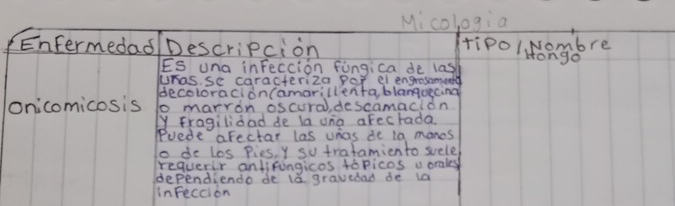 Micología
Enfermedad Descripción tipo/Nombre
Hongo
Es una infección fúngica de las
uñas. se caracteriza por el engrosamiento
decoloración (amarillenta, blanquecina
onicomicosis o marrón oscura), descamación
y fragilidad de la uña afectada.
Puede afectar las uñas de la manos
o de los pies, y su tratamiento suele
requerir antifúngicos tópicos u orales
dependiendo de la gravedad de la
infección